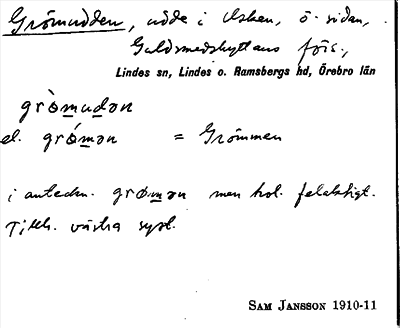 Grömudden, udde i Usken, ö. sidan,
Guldsmedshyttans förs.,
Lindes sn, Lindes o. Ramsbergs hd, Örebro län
grò̀mudən
el. grómən = Grömmen
i anteckn. gromən men hol. felaktigt.
Tillh. västra syst.
SAM JANSSON 1910-11